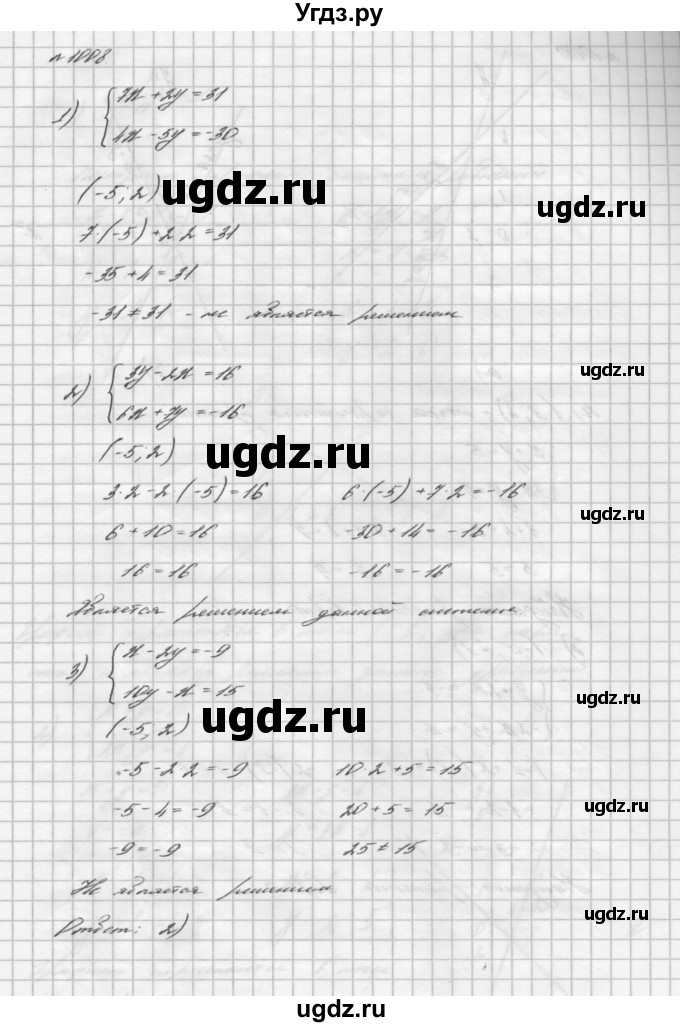 Угдз.ру
n 1008
1) { 7x + 2y = 31
4x - 5y = -30
(-5; 2)
ugdz.ru
ugdz.ru
7·(-5) + 2·2 = 31
-35 + 4 = 31
-31 ≠ 31 - не является решением
2) { 3y - 2x = 16
ugdz.ru
6x + 7y = -16
(-5; 2)
ugdz.ru
3·2 - 2(-5) = 16 6·(-5) + 7·2 = -16
ugdz.ru
6 + 10 = 16 -30 + 14 = -16
16 = 16 -16 = -16
Является решением данной системы
3) { x - 2y = -9
10y - x = 15
ugdz.ru
(-5; 2)
ugdz.ru
-5 - 2·2 = -9 10·2 + 5 = 15
-5 - 4 = -9 20 + 5 = 15
ugdz.ru
-9 = -9 25 ≠ 15
Не является решением
Ответ: 2)
ugdz.ru
ugdz.ru